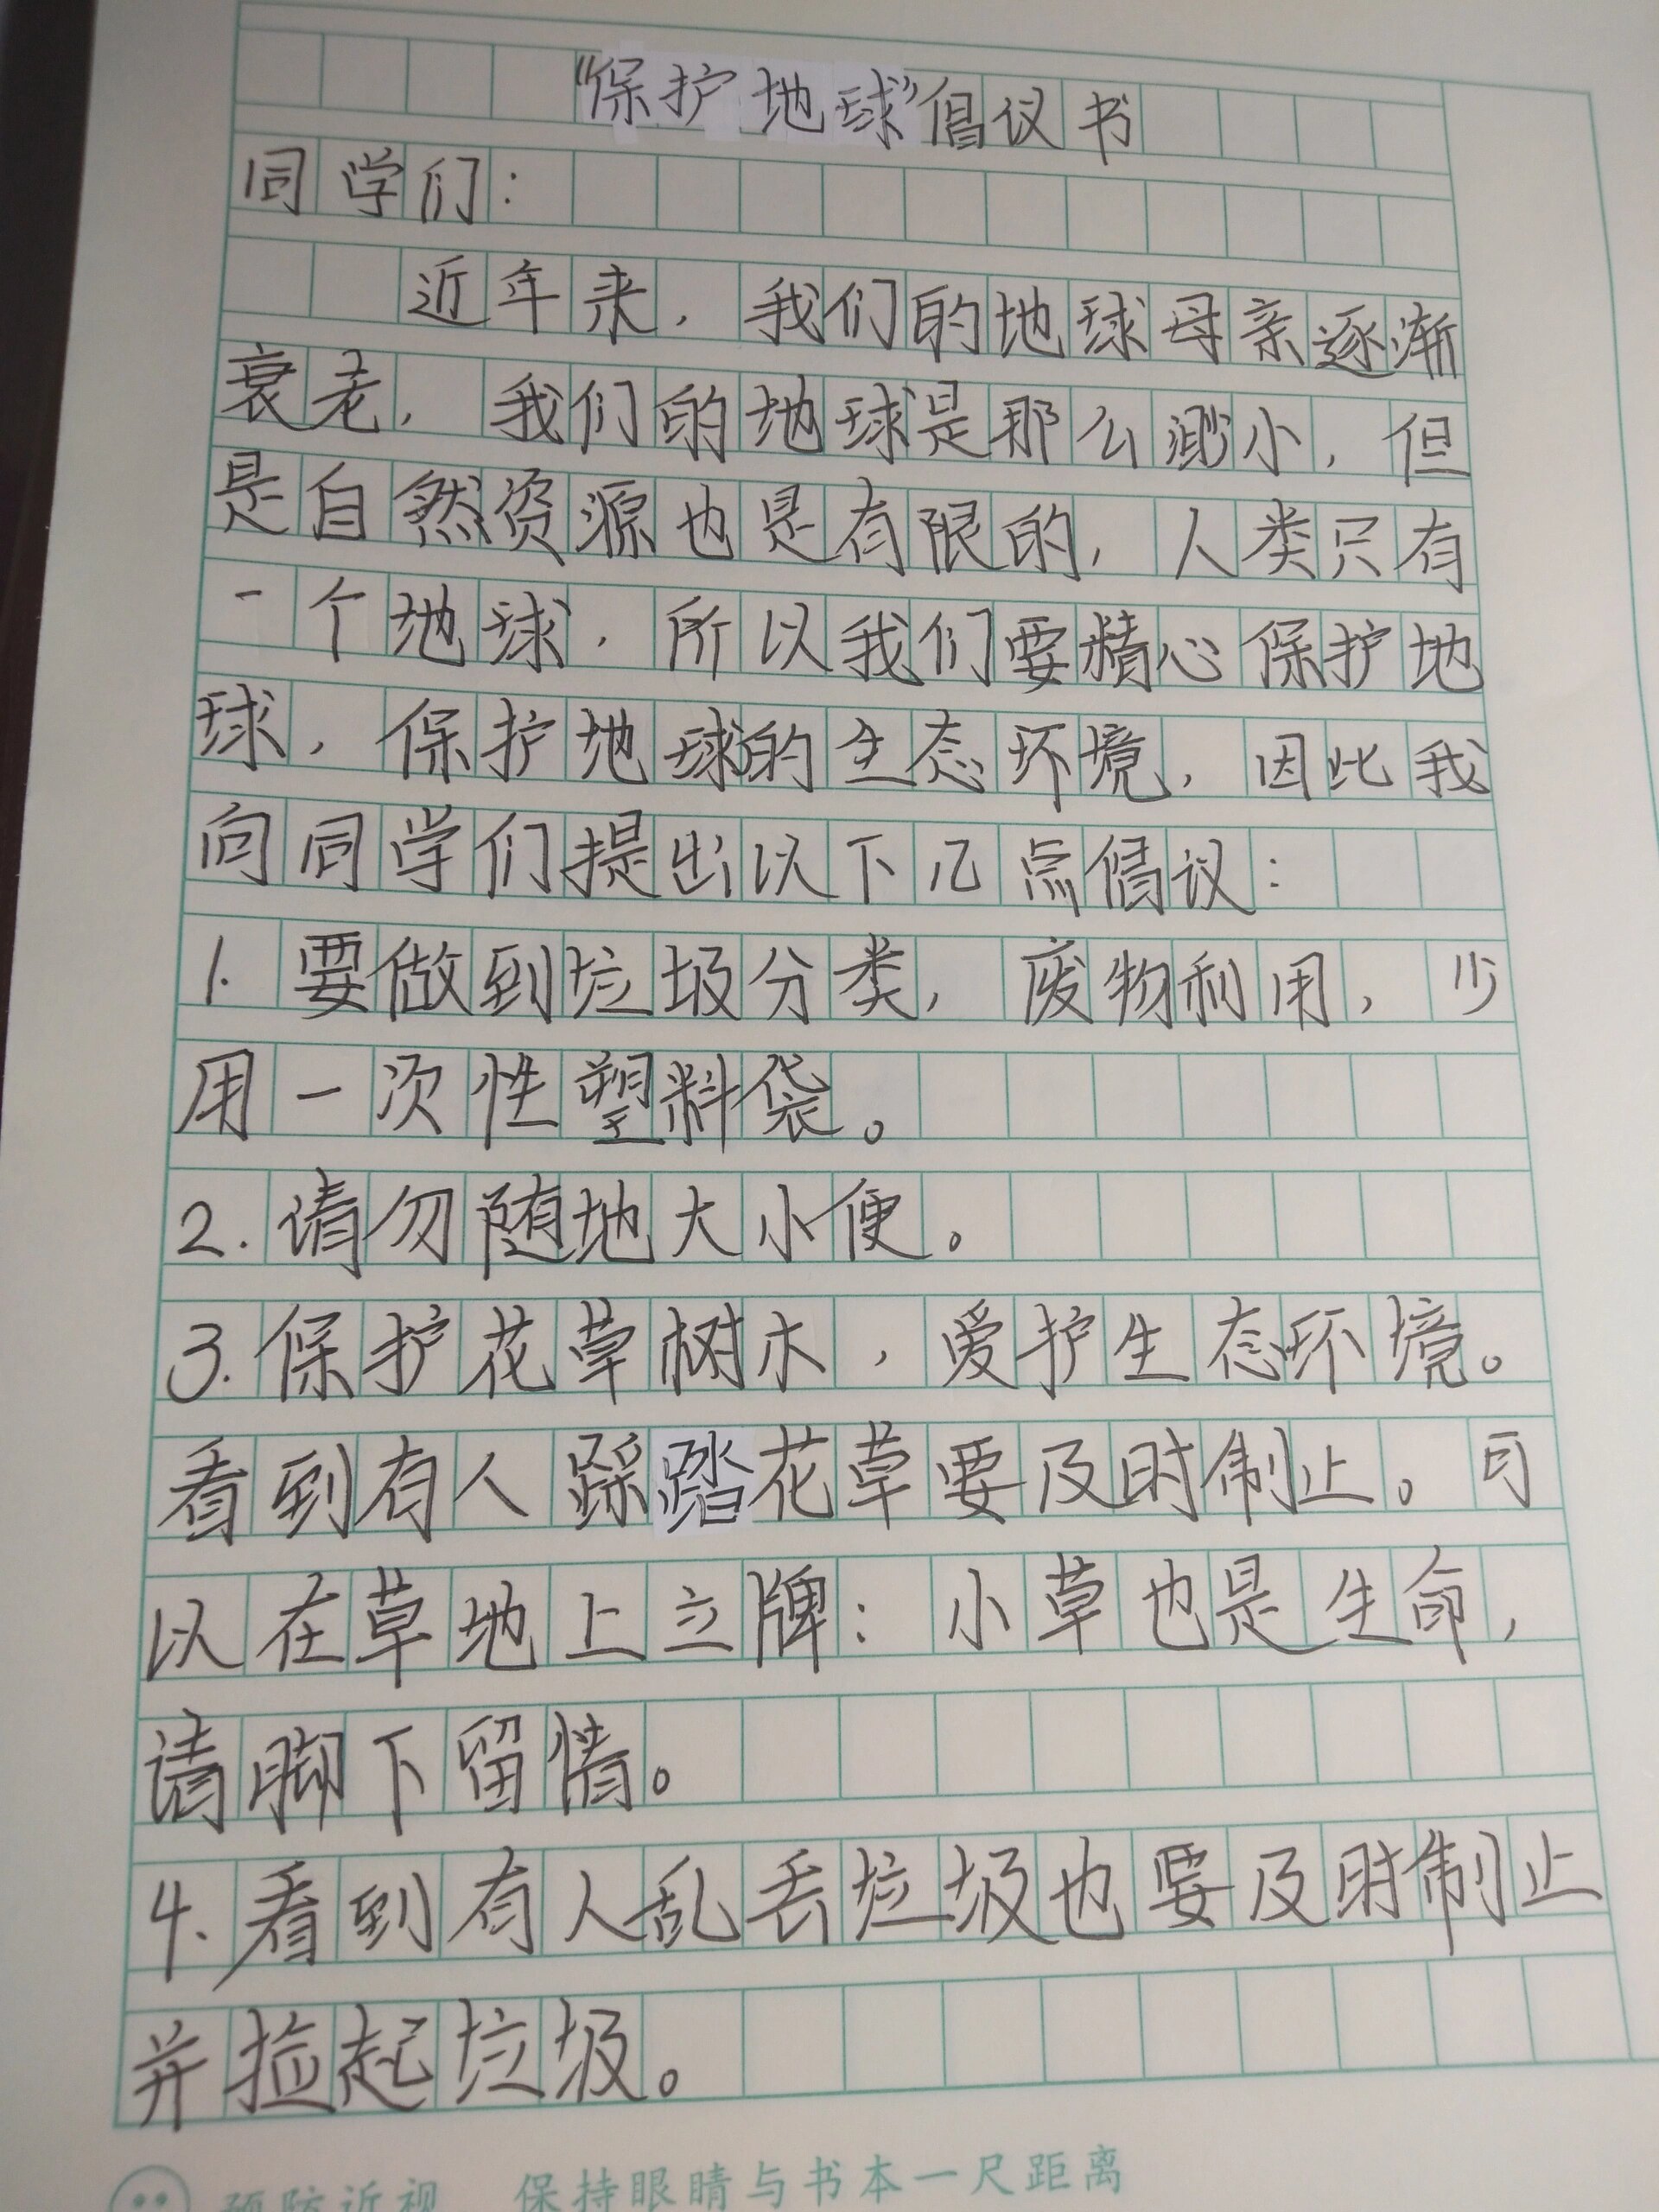 “保护地球”倡议书
同学们：
近年来，我们的地球母亲逐渐
衰老，我们的地球是那么渺小，但
是自然资源也是有限的，人类只有
一个地球，所以我们要精心保护地
球，保护地球的生态环境，因此我
向同学们提出以下几点倡议：
1.要做到垃圾分类，废物利用，少
用一次性塑料袋。
2.请勿随地大小便。
3.保护花草树木，爱护生态环境。
看到有人踩踏花草要及时制止。可
以在草地上立牌：小草也是生命，
请脚下留情。
4.看到有人乱丢垃圾也要及时制止
并捡起垃圾。
预防近视 保持眼睛与书本一尺距离